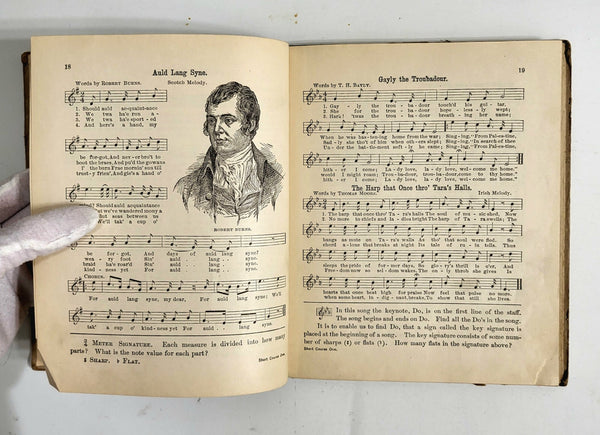 18
Auld Lang Syne.
Words by ROBERT BURNS.
Scotch Melody.
1. Should auld acquaintance
2. We twa ha'e ron a-
3. We twa ha'e sport-ed
4. And here's a hand, my
be for-got, And nev-er bro't to
boot the braes, And pu'd the
i' the burn Frae mornin' sun till
trust-y frien', And gie's a hand o'
Should auld acquaintance
we've wandered mony a
But seas between us
We'll tak' a cup o'
ROBERT BURNS.
be for-got, And days of auld lang syne?
wea-ry foot Sin' auld lang syne.
braid ha'e roar'd Sin' auld lang syne.
kind-ness yet For auld lang syne.
CHORUS.
For auld lang syne, my dear, For auld lang syne; We'll
tak' a cup o' kind-ness yet For auld lang syne.
2/4 METER SIGNATURE. Each measure is divided into how many
parts? What is the note value for each part?
♯ SHARP. ♭ FLAT.
Short Course One.
19
Gayly the Troubadour.
Words by T. H. BAYLY.
1. Gay-ly the trou-ba-dour touch'd his gui-tar,
2. She for the trou-ba-dour hope-less-ly wept;
3. Hark! 'twas the trou-ba-dour breath-ing her name;
When he was has-ten-ing home from the war; Sing-ing, "From Pal-es-tine,
Sad-ly she tho't of him when oth-ers slept; Sing-ing, "In search of thee
Un-der the bat-tle-ment he; Sing-ing, "From Pal-es-tine,
hith-er I come; La-dy love, la-dy love, wel-come me home."
would I might roam; Trou-ba-dour, trou-ba-dour, come to thy home."
hith-er I come; La-dy love, la-dy love, wel-come me home."
The Harp that Once thro' Tara's Halls.
Words by THOMAS MOORE.
Irish Melody.
1. The harp that once thro' Ta-ra's halls The soul of mu-sic shed, Now
2. No more to chiefs and la-dies bright The harp of Ta-ra swells; The
hangs as mute on Ta-ra's walls As tho' that soul were fled. So
chord a-lone that breaks at night Its tale of ru-in tells. Thus
sleeps the pride of for-mer days, So glo-ry's thrill is o'er, And
Free-dom now so sel-dom wakes, The on-ly throb she gives Is
hearts that once beat high for praise Now feel that pulse no more.
when some heart, in-dig-nant breaks, To show that still she lives.
In this song the keynote, Do, is on the first line of the staff.
The song begins and ends on Do. Find all the Do's in the song.
It is to enable us to find Do, that a sign called the key signature is
placed at the beginning of a song. The key signature consists of some num-
ber of sharps (♯) or flats (♭). How many flats in the signature above?
Short Course One.